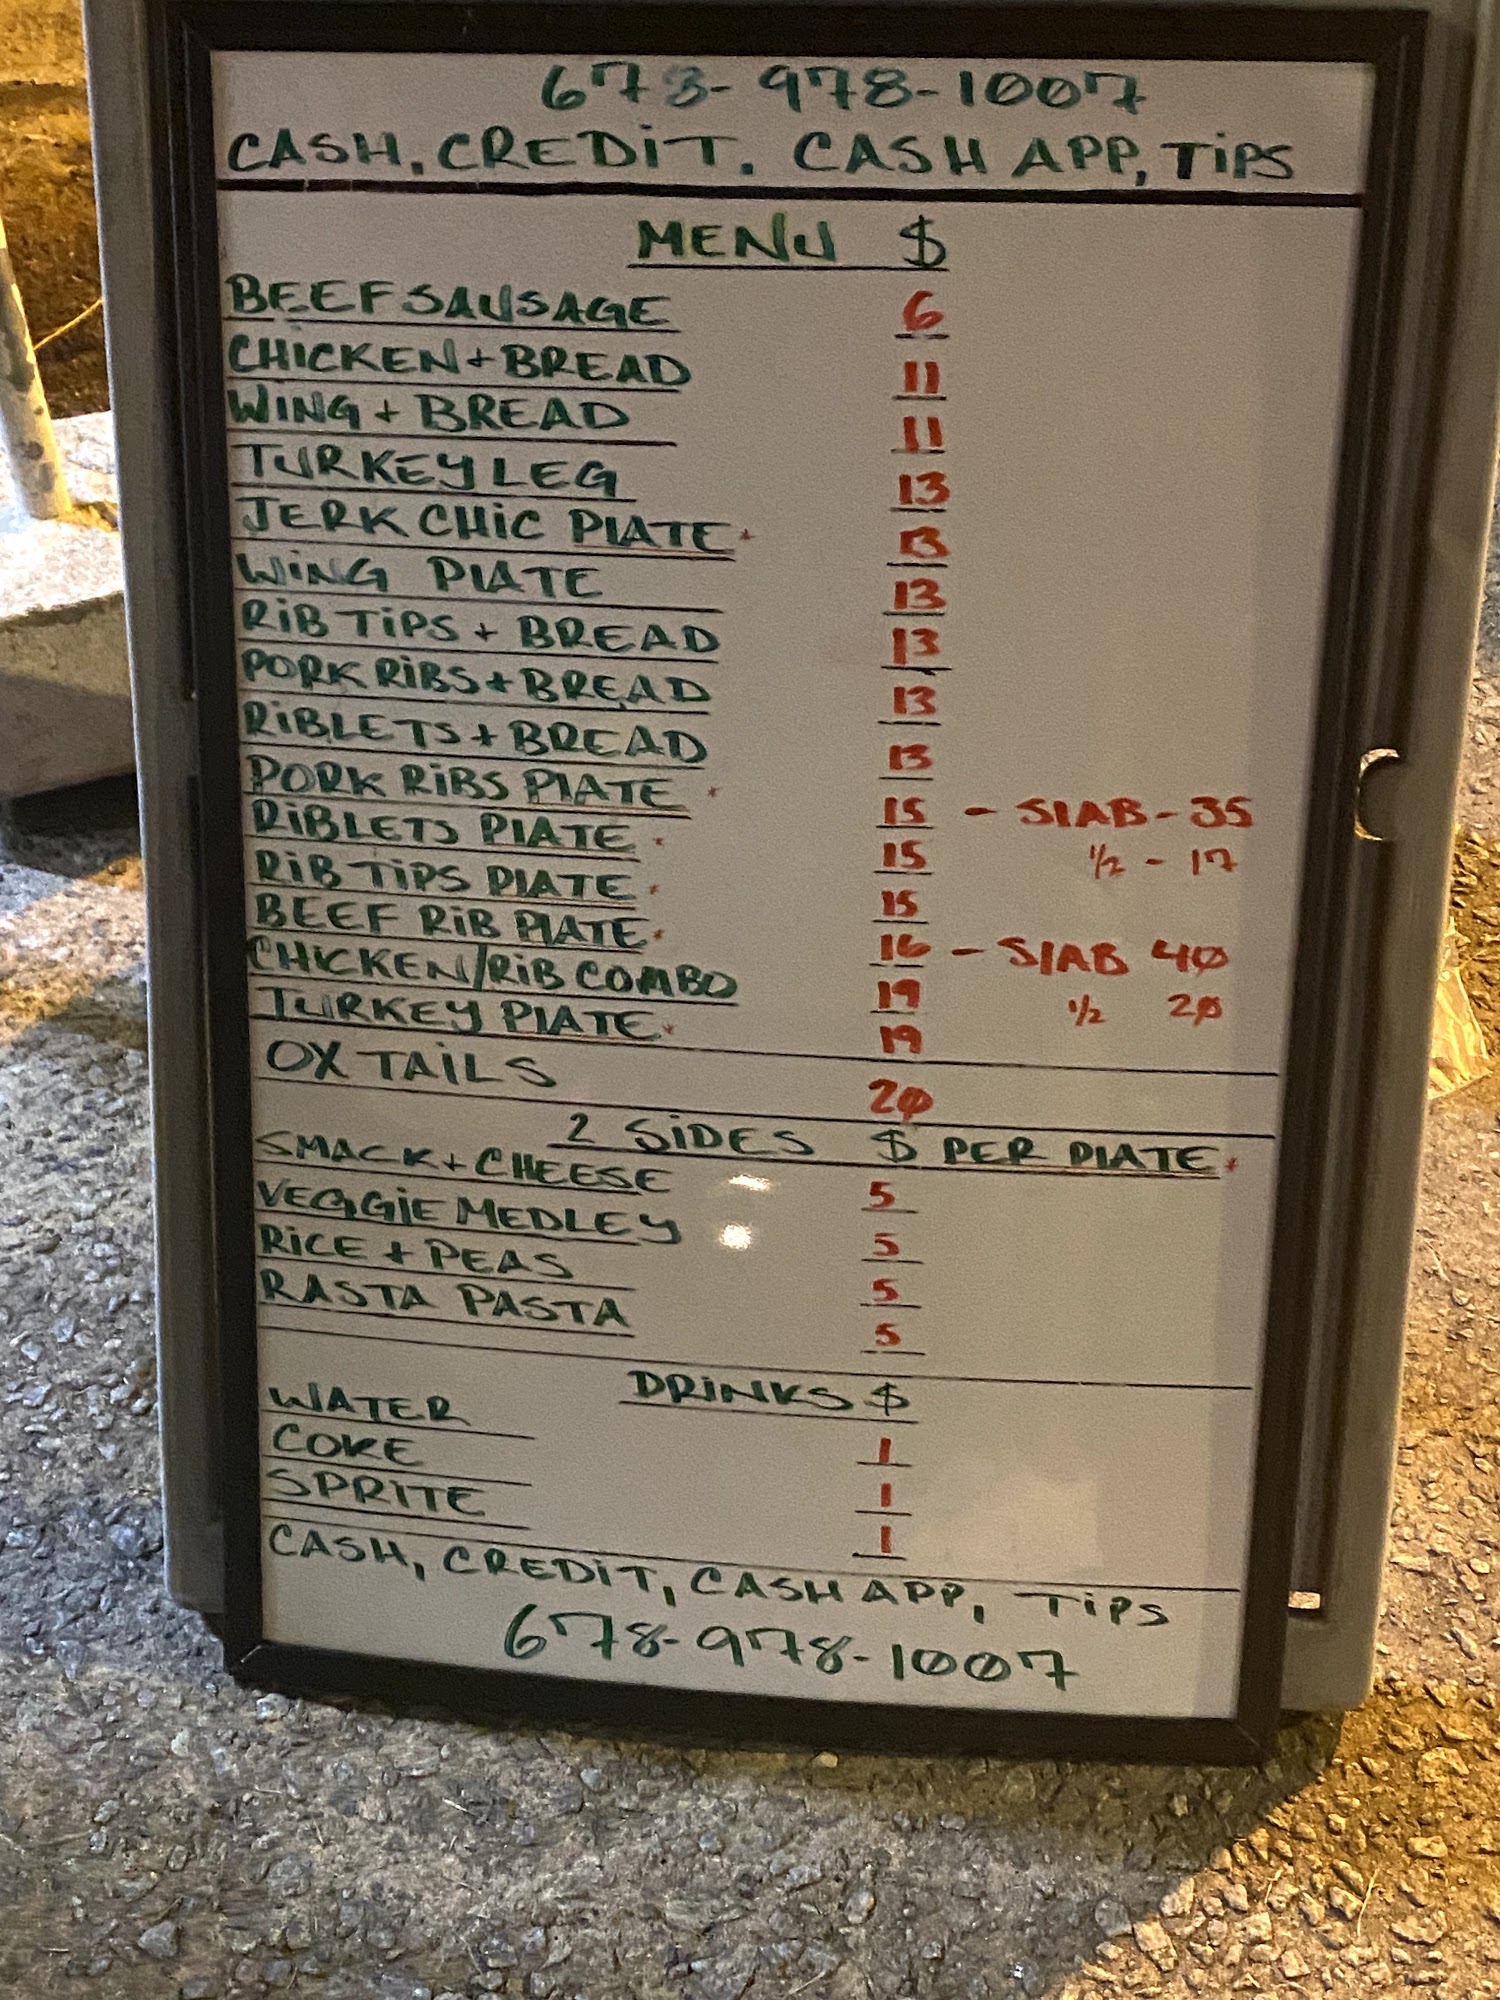 678-978-1007
CASH, CREDIT. CASH APP, TIPS
MENU $
BEEF SAUSAGE 6
CHICKEN + BREAD 11
WING + BREAD 11
TURKEY LEG 13
JERK CHIC PLATE * 13
WING PLATE 13
RIB TIPS + BREAD 13
PORK RIBS + BREAD 13
RIBLETS + BREAD 13
PORK RIBS PLATE * 15 - SLAB - 35
RIBLETS PLATE * 15 1/2 - 17
RIB TIPS PLATE * 15
BEEF RIB PLATE * 16 - SLAB 40
CHICKEN/RIB COMBO 19 1/2 20
TURKEY PLATE * 19
OX TAILS 20
2 SIDES $ PER PLATE *
SMACK + CHEESE 5
VEGGIE MEDLEY 5
RICE + PEAS 5
RASTA PASTA 5
DRINKS $
WATER 1
COKE 1
SPRITE 1
CASH, CREDIT, CASH APP, TIPS
678-978-1007